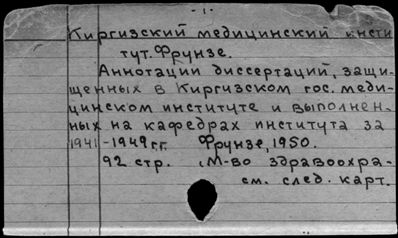 -1-
Киргизский медицинский инсти
тут. Фрунзе.
Аннотации диссертаций, защи-
щенных в Киргизском гос. меди-
цинском институте и выполнен-
ных на кафедрах института за
1941-1949 г.г. Фрунзе, 1950.
92 стр. (М-во здравоохра-
см. след. карт.